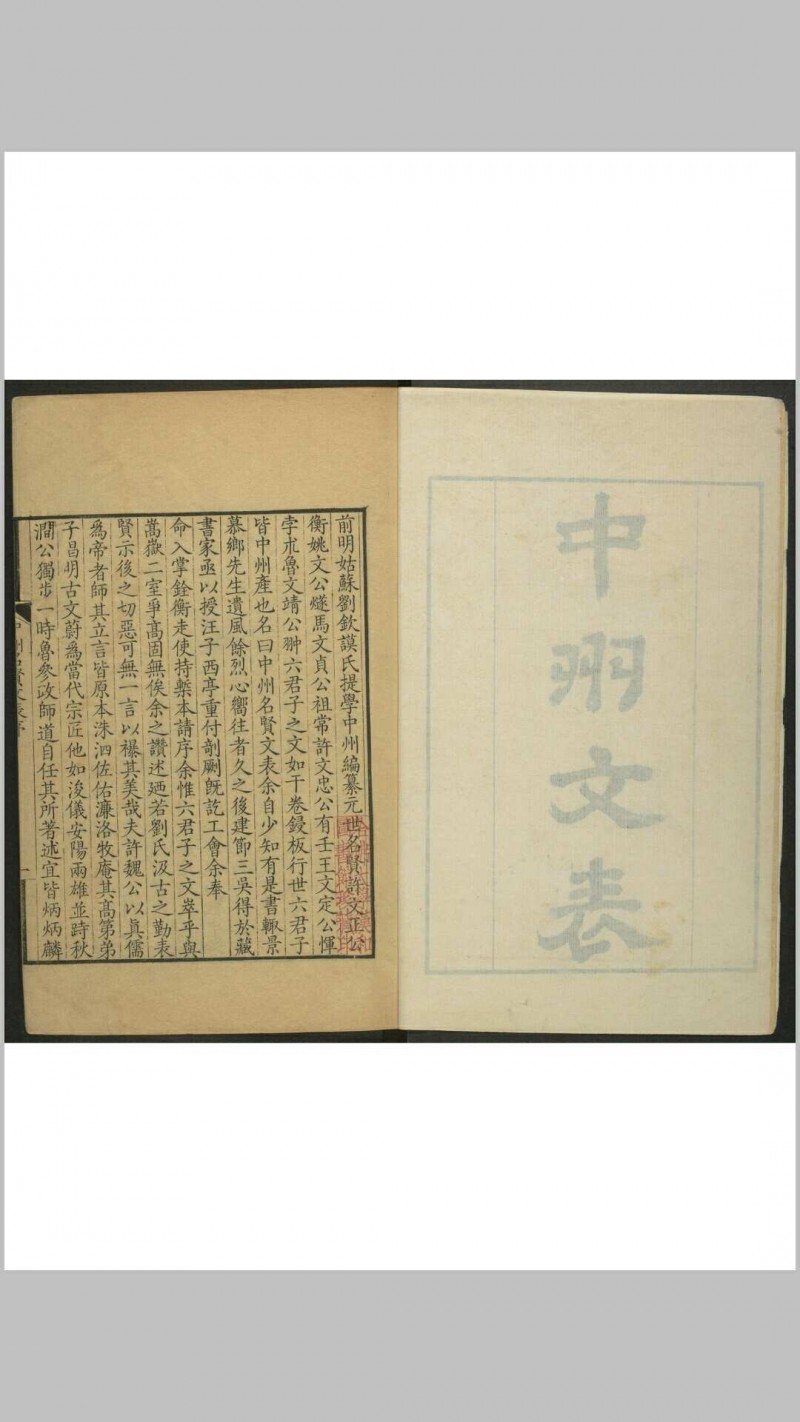 中州文表
前明姑蘇劉欽謨氏提學中州編纂元世名賢許文正公
衡姚文公燧馬文貞公祖常許文忠公有壬王文定公惲
孛朮魯文靖公翀六君子之文如干卷鋟板行世六君子
皆中州產也名曰中州名賢文表余自少知有是書輙景
慕鄉先生遺風餘烈心嚮往者久之後建節三吳得於藏
書家亟以授汪子西亭重付剞劂旣訖工會余奉
命入掌銓衡走使持槧本請序余惟六君子之文崒乎與
嵩嶽二室爭髙固無俟余之讚述廼若劉氏汲古之勤表
賢示後之切惡可無一言以襮其美哉夫許魏公以眞儒
爲帝者師其立言皆原本洙泗佐佑濂洛牧庵其髙第弟
子昌明古文蔚爲當代宗匠他如浚儀安陽兩雄並時秋
澗公獨步一時魯叅政師道自任其所著述宜皆炳炳麟